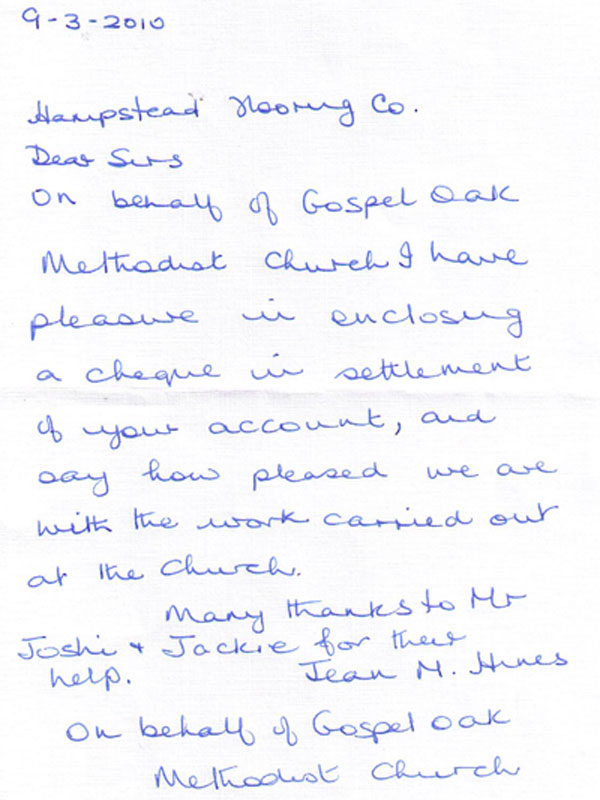 9-3-2010
Hampstead Flooring Co.
Dear Sirs
On behalf of Gospel Oak
Methodist Church I have
pleasure in enclosing
a cheque in settlement
of your account, and
say how pleased we are
with the work carried out
at the Church.
Many thanks to Mr
Joshi & Jackie for their
help. Jean M. Hines
On behalf of Gospel Oak
Methodist Church